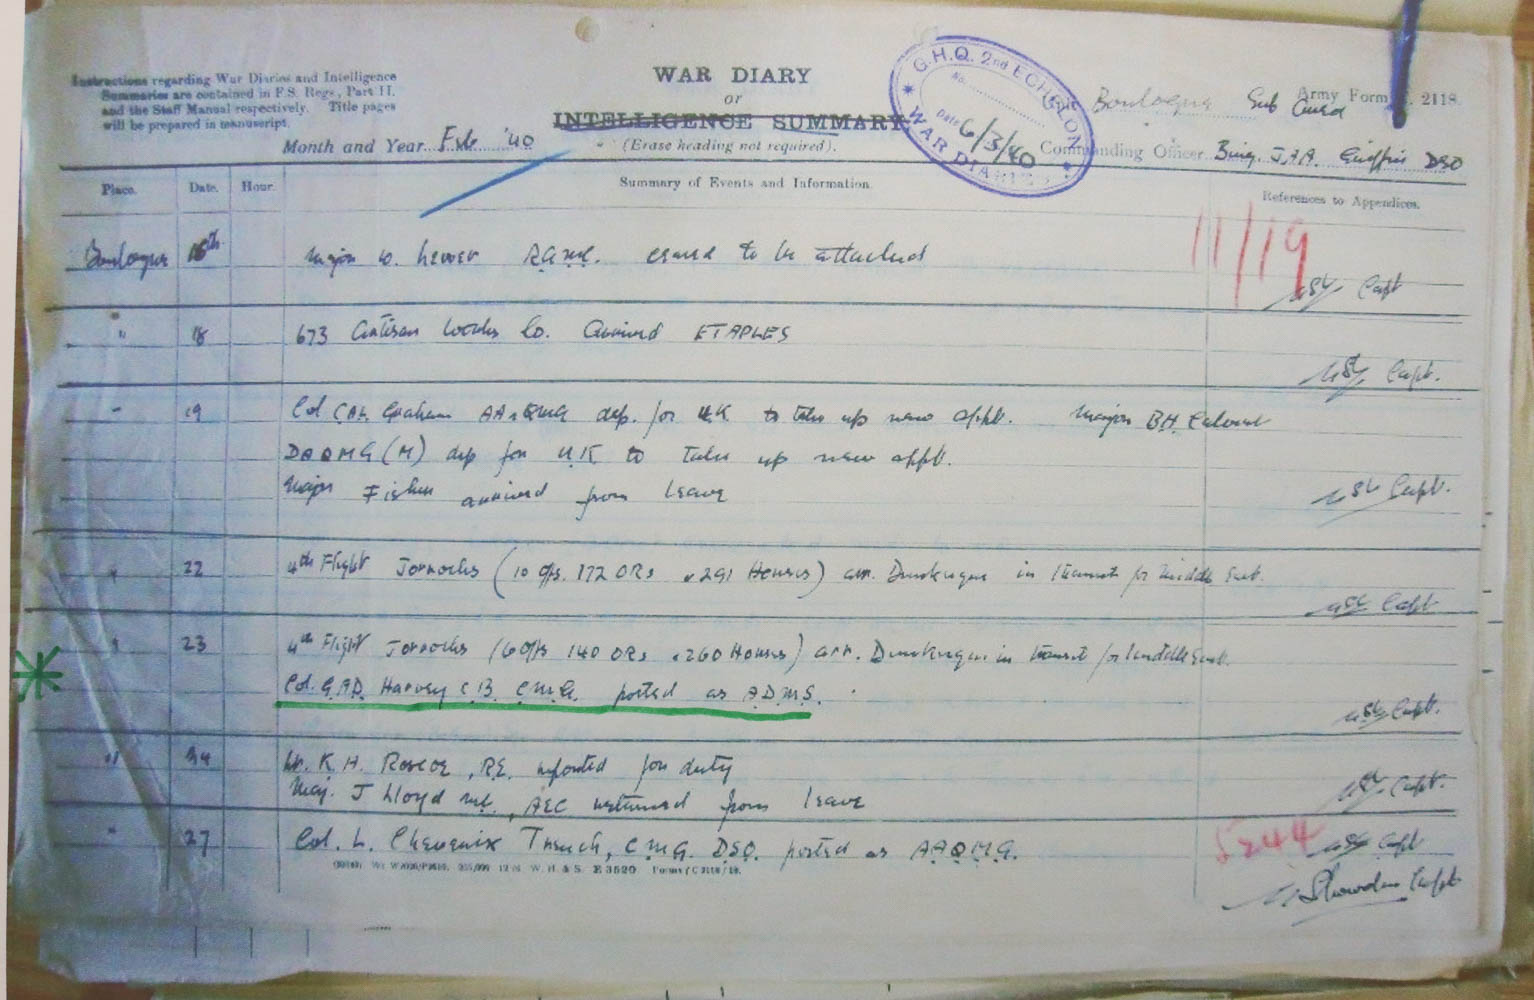 Instructions regarding War Diaries and Intelligence
Summaries are contained in F.S. Regs., Part II.
and the Staff Manual respectively. Title pages
will be prepared in manuscript.
WAR DIARY
or
INTELLIGENCE SUMMARY
(Erase heading not required).
Month and Year Feb '40
G.H.Q. 2nd ECHELON
No.
Date 6/3/40
WAR DIARIES
Army Form 2118.
Boulogne Sub
Commanding Officer Brig. J.A.A. Griffin DSO
Place. Date. Hour. Summary of Events and Information. References to Appendices.
11/19
Boulogne 16th Major W. RAMC. ceased to be attached
Capt
" 18 673 Artisan Works Co. Arrived ETAPLES
Capt.
" 19 Col. Graham AA&QMG dep. for UK to take up new appt. Major B.H. Calvert
DAQMG (M) dep for UK to take up new appt.
Major Fisher arrived from leave
Capt.
" 22 4th Flight Jorrocks (10 Offs. 172 ORs & 291 Horses) arr. Dunkerque in transit for Middle East.
Capt
" 23 4th Flight Jorrocks (6 Offs 140 ORs & 260 Horses) arr. Dunkerque in transit for Middle East.
Col. G.A.D. Harvey C.B. C.M.G. posted as A.D.M.S.
Capt.
" 24 Lt. K.H. Roscoe, R.E. reported for duty
Maj. J Lloyd AEC returned from leave
Capt.
" 27 Col. L. Chevenix Trench, C.M.G. D.S.O. posted as A.A.Q.M.G.
5244
Capt
Capt